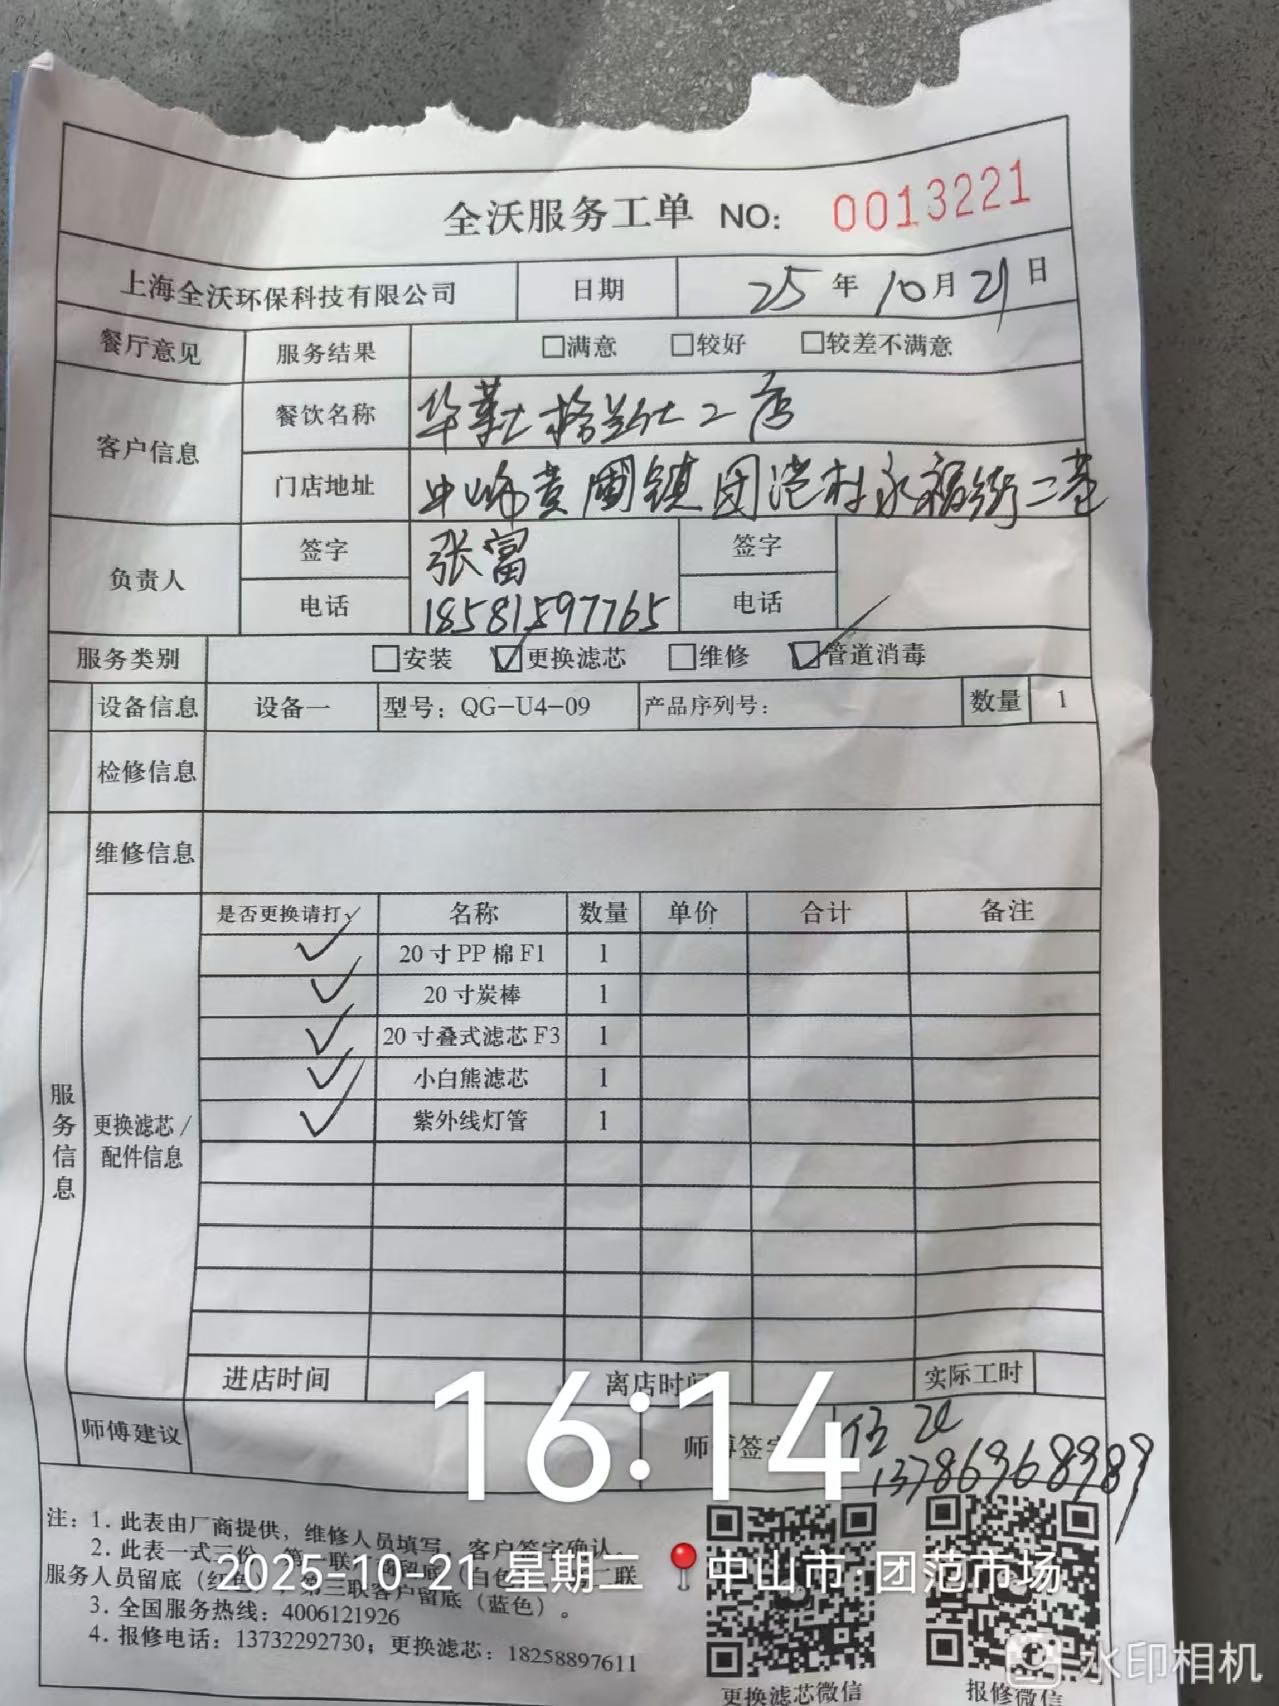 全沃服务工单 NO: 0013221
上海全沃环保科技有限公司 日期 25年10月21日
餐厅意见 服务结果 □满意 □较好 □较差不满意
客户信息 餐饮名称 华莱士格兰仕二店
门店地址 中山市黄圃镇团范村永福街二巷
负责人 签字 张富 签字
电话 18581597765 电话
服务类别 □安装 ☑更换滤芯 □维修 ☑管道消毒
设备信息 设备一 型号：QG-U4-09 产品序列号： 数量 1
检修信息
维修信息
服务信息
更换滤芯/配件信息
是否更换请打√ 名称 数量 单价 合计 备注
✓ 20寸PP棉F1 1
✓ 20寸炭棒 1
✓ 20寸叠式滤芯F3 1
✓ 小白熊滤芯 1
✓ 紫外线灯管 1
进店时间 离店时间 实际工时
16:14
师傅建议 师傅签字
13786968989
注：1. 此表由厂商提供，维修人员填写，客户签字确认。
2. 此表一式三份，第一联 留底（白色 二联
服务人员留底（红色 三联客户留底（蓝色）。
2025-10-21 星期二 中山市·团范市场
3. 全国服务热线：4006121926
4. 报修电话：13732292730；更换滤芯：18258897611
更换滤芯微信 报修微信
水印相机